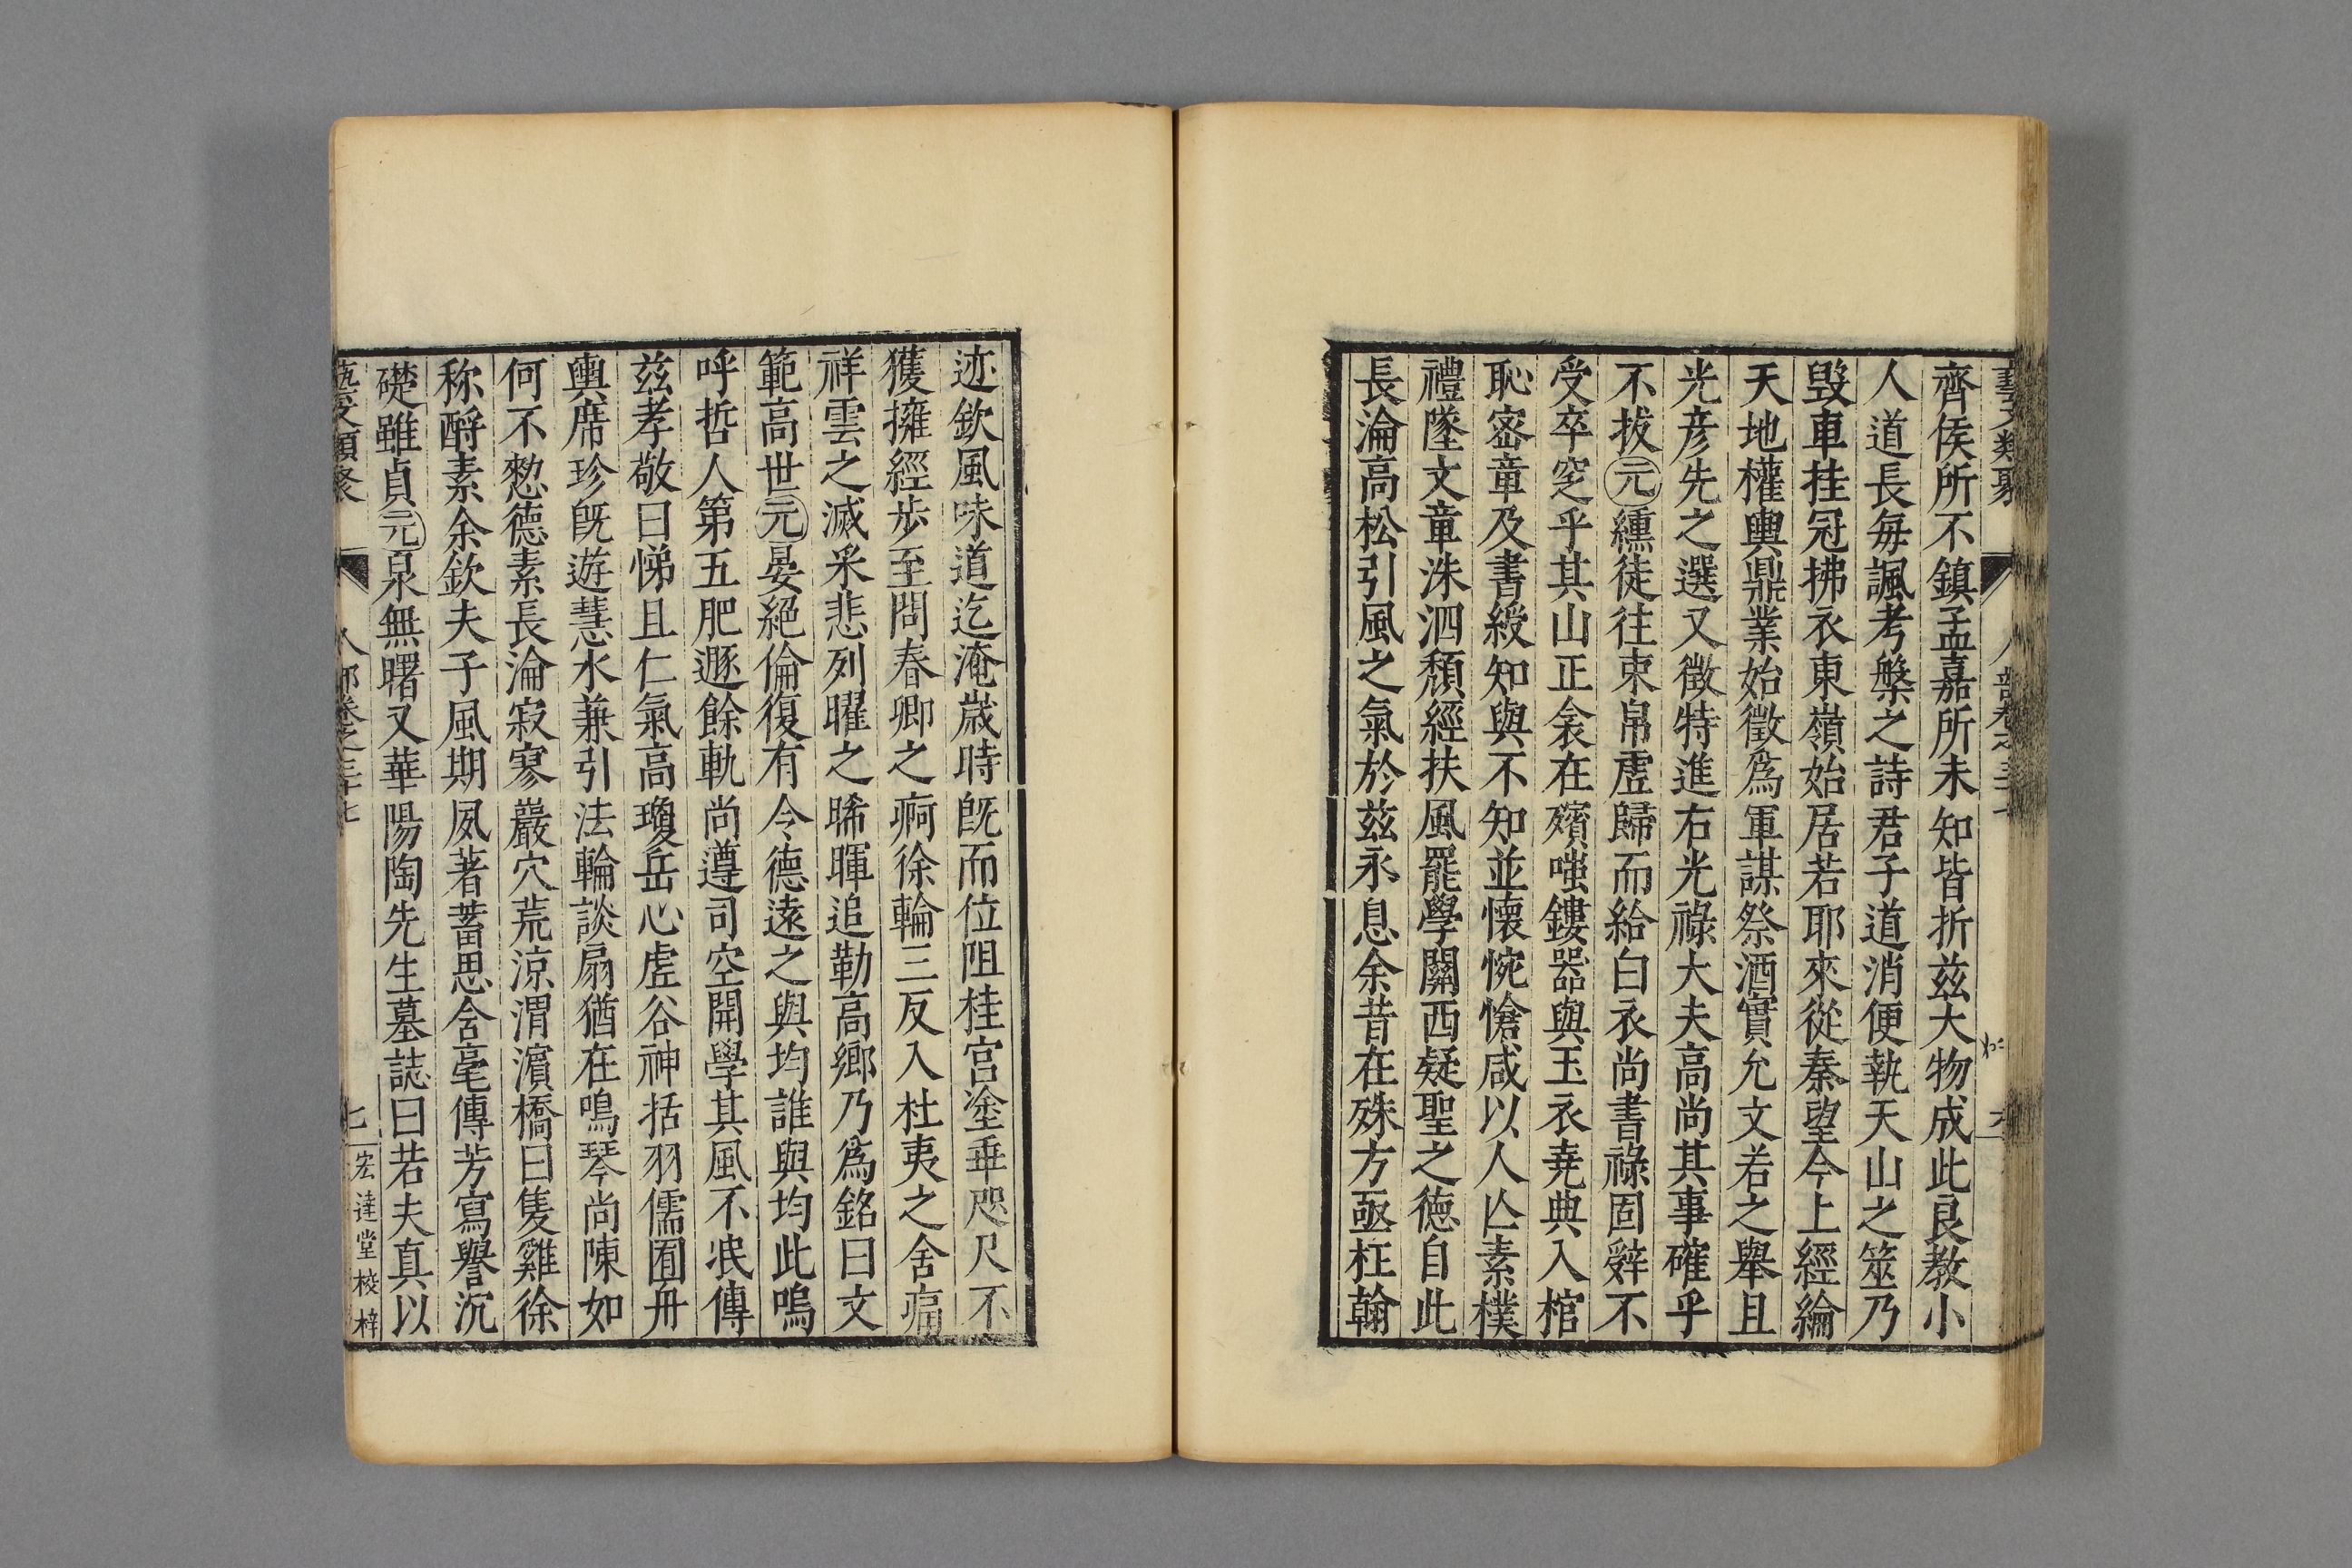 齊侯所不鎮孟嘉所未知皆折茲大物成此良教小
人道長每諷考槃之詩君子道消便執天山之筮乃
毀車挂冠拂衣東嶺始居若耶來從秦望今上經綸
天地權輿鼎業始徵爲軍謀祭酒實允文若之舉且
光彦先之選又徵特進右光祿大夫高尚其事確乎
不拔元纁徒往束帛虛歸而給白衣尚書祿固辭不
受卒窆乎其山正衾在殯嗤鏤器與玉衣堯典入棺
恥密章及書綬知與不知並懷惋愴咸以人亾素樸
禮墜文章洙泗頽經扶風罷學關西疑聖之德自此
長淪高松引風之氣於茲永息余昔在殊方亟枉翰
迹欽風味道迄淹歲時旣而位阻桂宮塗乖咫尺不
獲擁經步至問春卿之痾徐輪三反入杜夷之舍痛
祥雲之滅采悲列曜之晞暉追勒高鄉乃爲銘曰文
範高世元晏絕倫復有今德遠之與均誰與均此嗚
呼哲人第五肥遯餘軌尚遵司空開學其風不泯傳
茲孝敬曰悌且仁氣高瓊岳心虛谷神括羽儒囿舟
輿席珍旣遊慧水兼引法輪談扇猶在鳴琴尚陳如
何不憖德素長淪寂寥巖穴荒涼渭濵橋曰隻雞徐
称酹素余欽夫子風期夙著蓄思含毫傳芳寫譽沉
礎雖貞元泉無曙又華陽陶先生墓誌曰若夫真以
藝文類聚 人部卷之三十七 七 宏達堂校梓